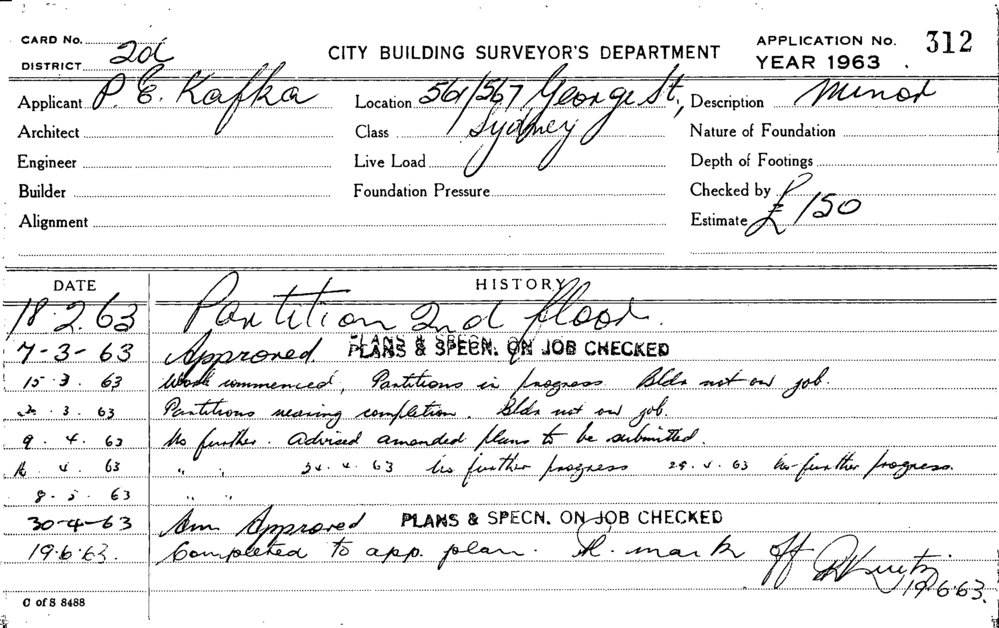 CARD No.
DISTRICT 2d
CITY BUILDING SURVEYOR'S DEPARTMENT
APPLICATION No. 312
YEAR 1963
Applicant P. E. Kafka
Location 561/567 George St,
Sydney
Description Minor
Architect
Class
Nature of Foundation
Engineer
Live Load
Depth of Footings
Builder
Foundation Pressure
Checked by
Alignment
Estimate £150
DATE HISTORY
18.2.63 Partition 2nd floor.
7-3-63 Approved. PLANS & SPECN. ON JOB CHECKED
15.3.63 Work commenced, Partitions in progress. Bldr not on job.
.3.63 Partitions nearing completion. Bldr not on job.
9.4.63 No further. Advised amended plans to be submitted.
.4.63 " " .4.63 No further progress 29.4.63 No further progress.
8.5.63 " "
30-4-63 Am. Approved PLANS & SPECN. ON JOB CHECKED
19.6.63. Completed to app. plan. mark off
19.6.63.
C of S 8488